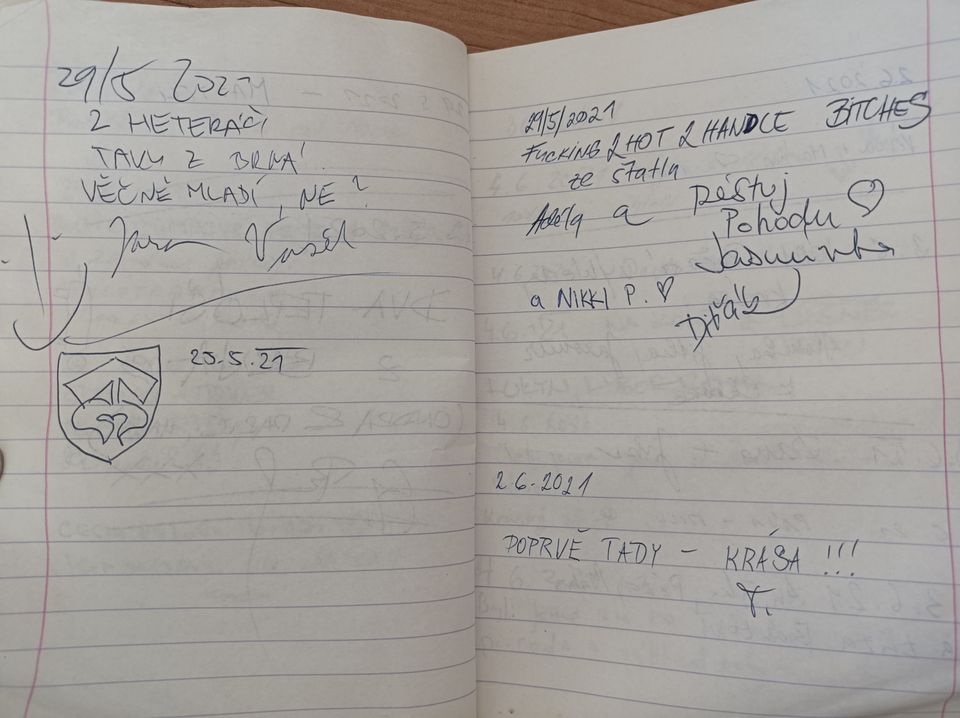 29/5 2021
2 HETERÁČI
TAVU Z BRNA!
VĚČNĚ MLADÍ, NE?
Jara Vašek
25.5.21
29/5/2021
FUCKING 2 HOT 2 HANDLE BITCHES
ze statlu
Adéla a pěstuj
Pohodu ♡
Jasmínka
a NIKKI P. ♡
2.6.2021
POPRVÉ TADY – KRÁSA !!!
T.